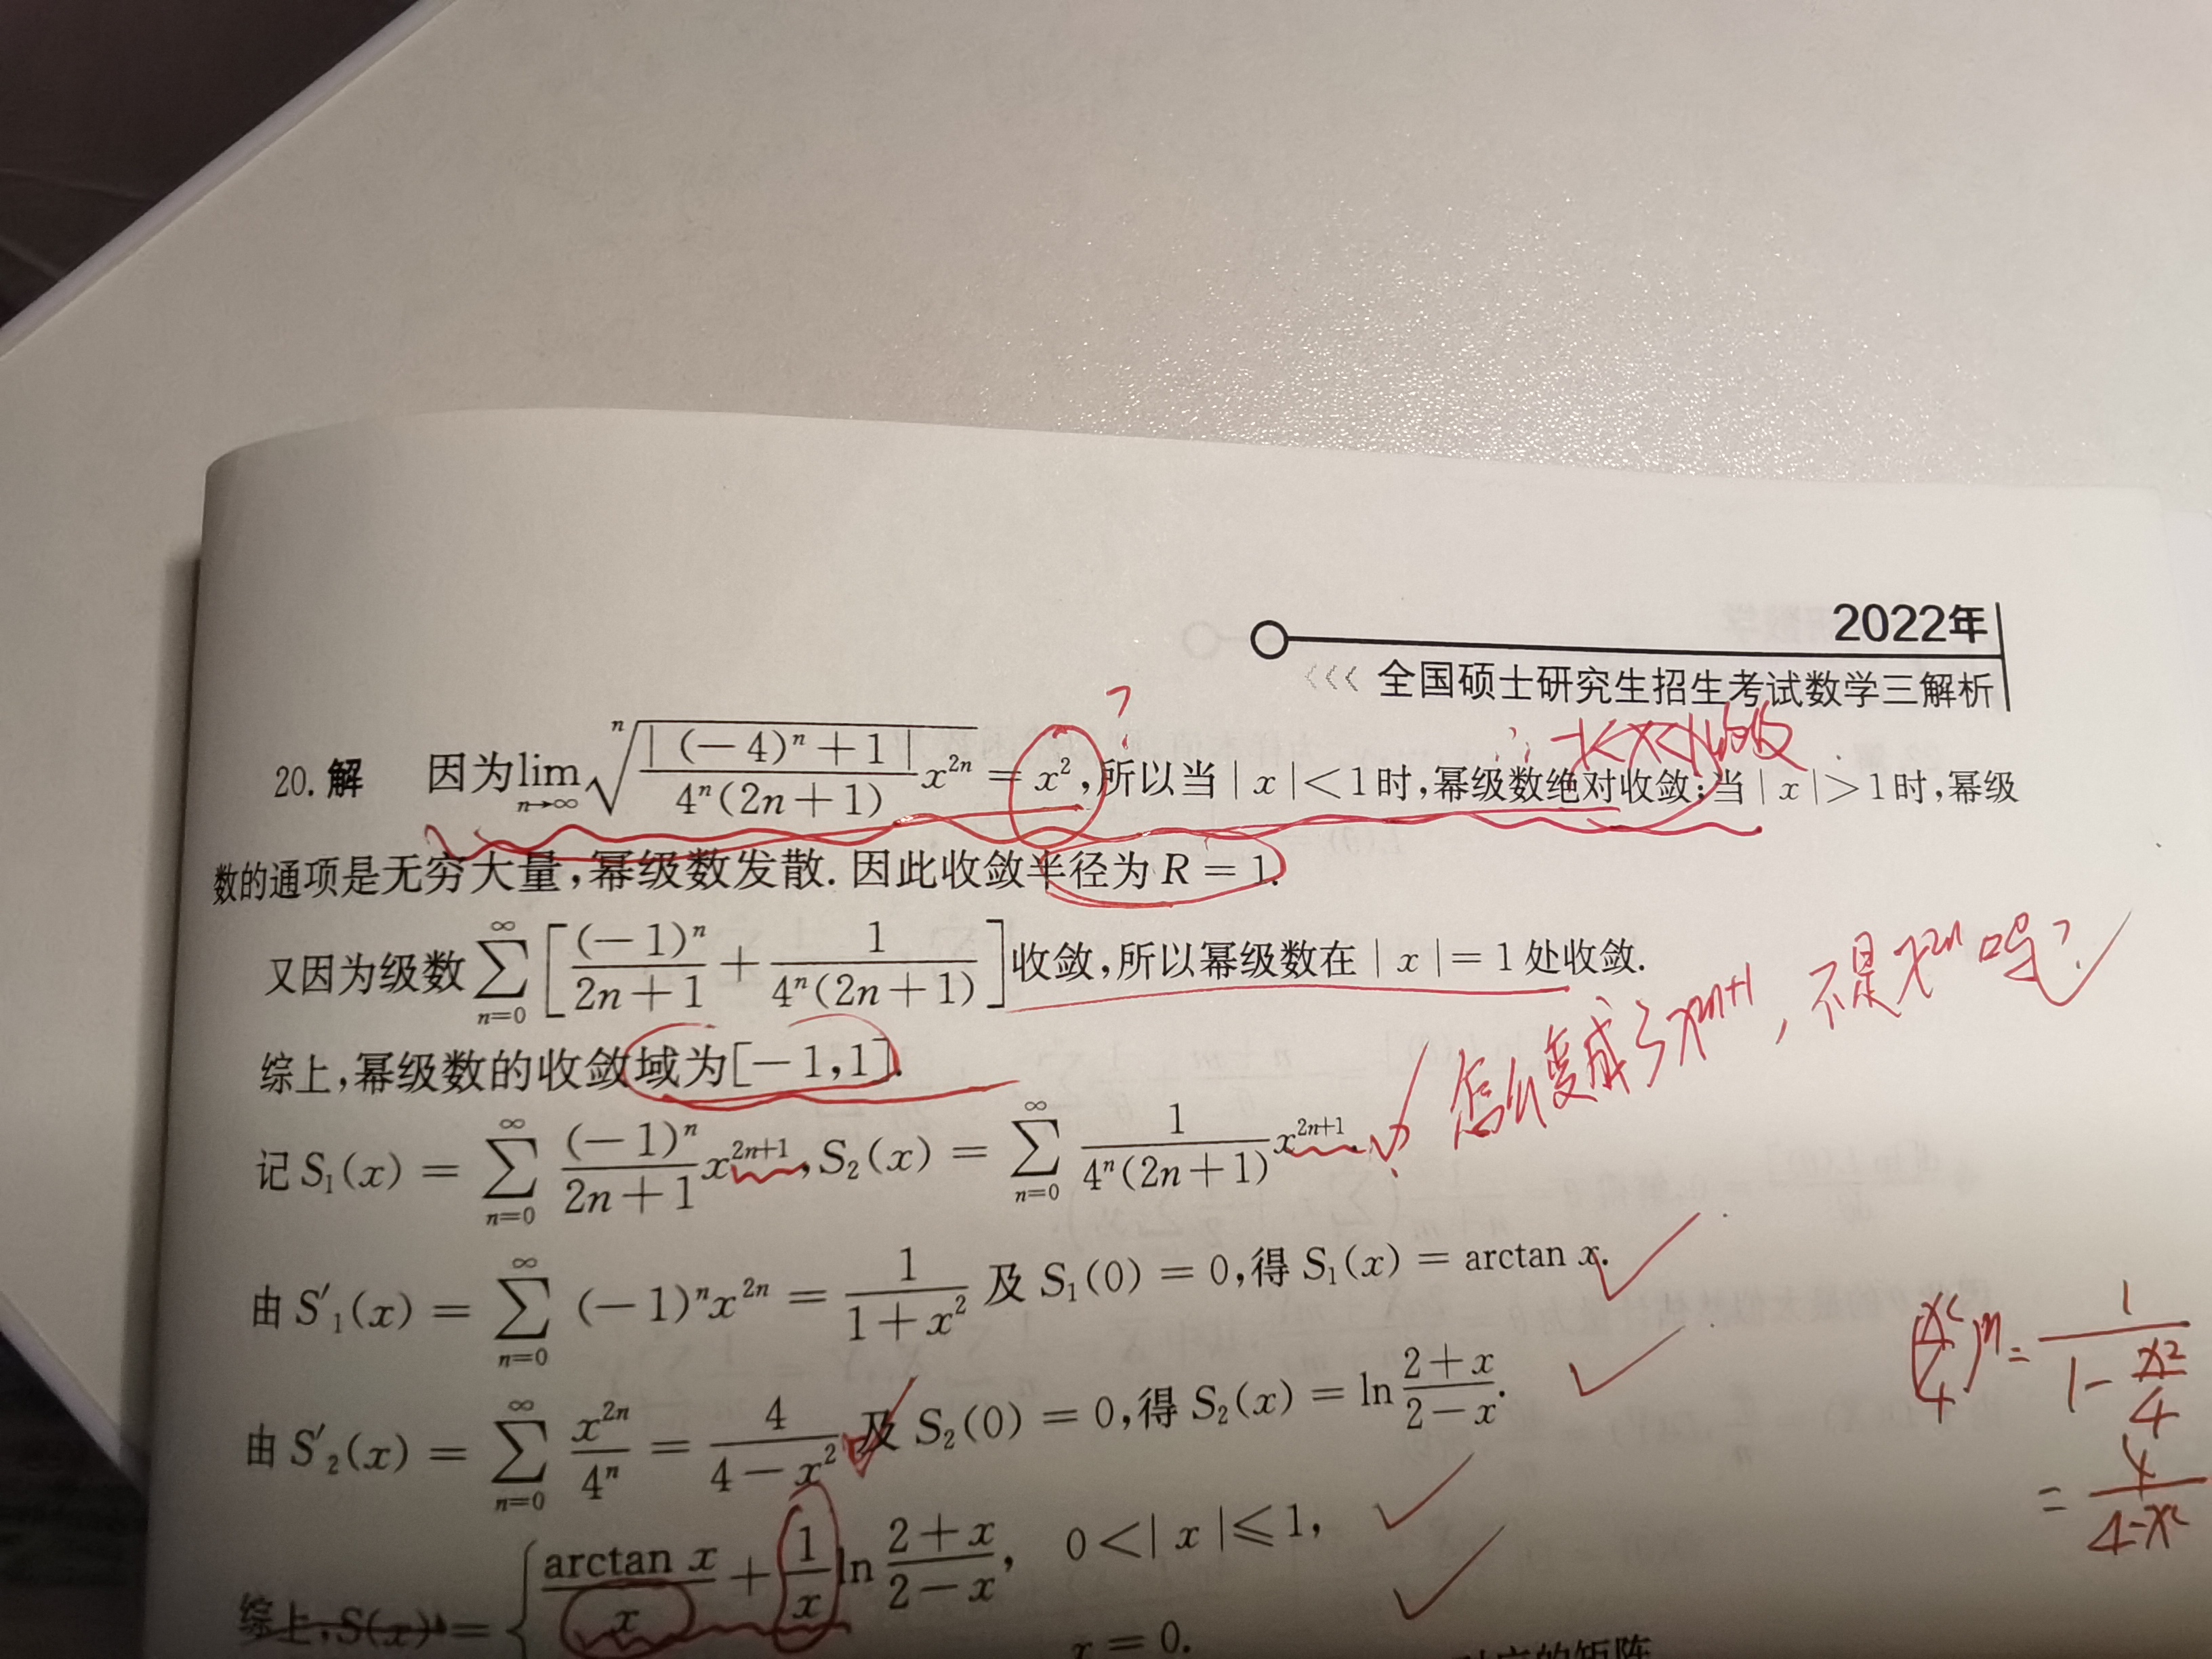 2022年
<<< 全国硕士研究生招生考试数学三解析
?
20. 解 因为 lim_{n→∞} \sqrt[n]{\frac{|(-4)^n+1|}{4^n(2n+1)}x^{2n}} = x^2, 所以当 |x|<1时, 幂级数绝对收敛; 当 |x|>1时, 幂级
数的通项是无穷大量, 幂级数发散. 因此收敛半径为 R=1.
又因为级数 \sum_{n=0}^{∞} [\frac{(-1)^n}{2n+1} + \frac{1}{4^n(2n+1)}] 收敛, 所以幂级数在 |x|=1 处收敛.
综上, 幂级数的收敛域为[-1,1].
怎么变成了x^{2n+1}, 不是x^{2n}吗?
记 S_1(x) = \sum_{n=0}^{∞} \frac{(-1)^n}{2n+1}x^{2n+1}, S_2(x) = \sum_{n=0}^{∞} \frac{1}{4^n(2n+1)}x^{2n+1}.
由 S'_1(x) = \sum_{n=0}^{∞} (-1)^n x^{2n} = \frac{1}{1+x^2} 及 S_1(0)=0, 得 S_1(x) = arctan x.
由 S'_2(x) = \sum_{n=0}^{∞} \frac{x^{2n}}{4^n} = \frac{4}{4-x^2} 及 S_2(0)=0, 得 S_2(x) = ln\frac{2+x}{2-x}.
(\frac{x^2}{4})^n = \frac{1}{1-\frac{x^2}{4}}
= \frac{4}{4-x^2}
综上, S(x) = { \frac{arctan x}{x} + \frac{1}{x}ln\frac{2+x}{2-x}, 0<|x|≤1,
x=0.
的矩阵